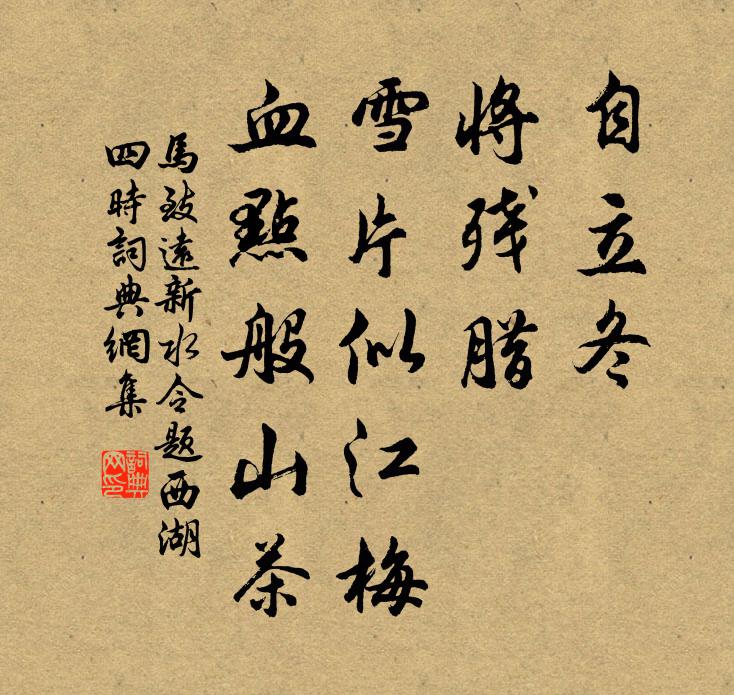 自立冬
将残腊
雪片似江梅
血點般山茶
馬致遠新水令题西湖
四時詞典網集
詞典网印